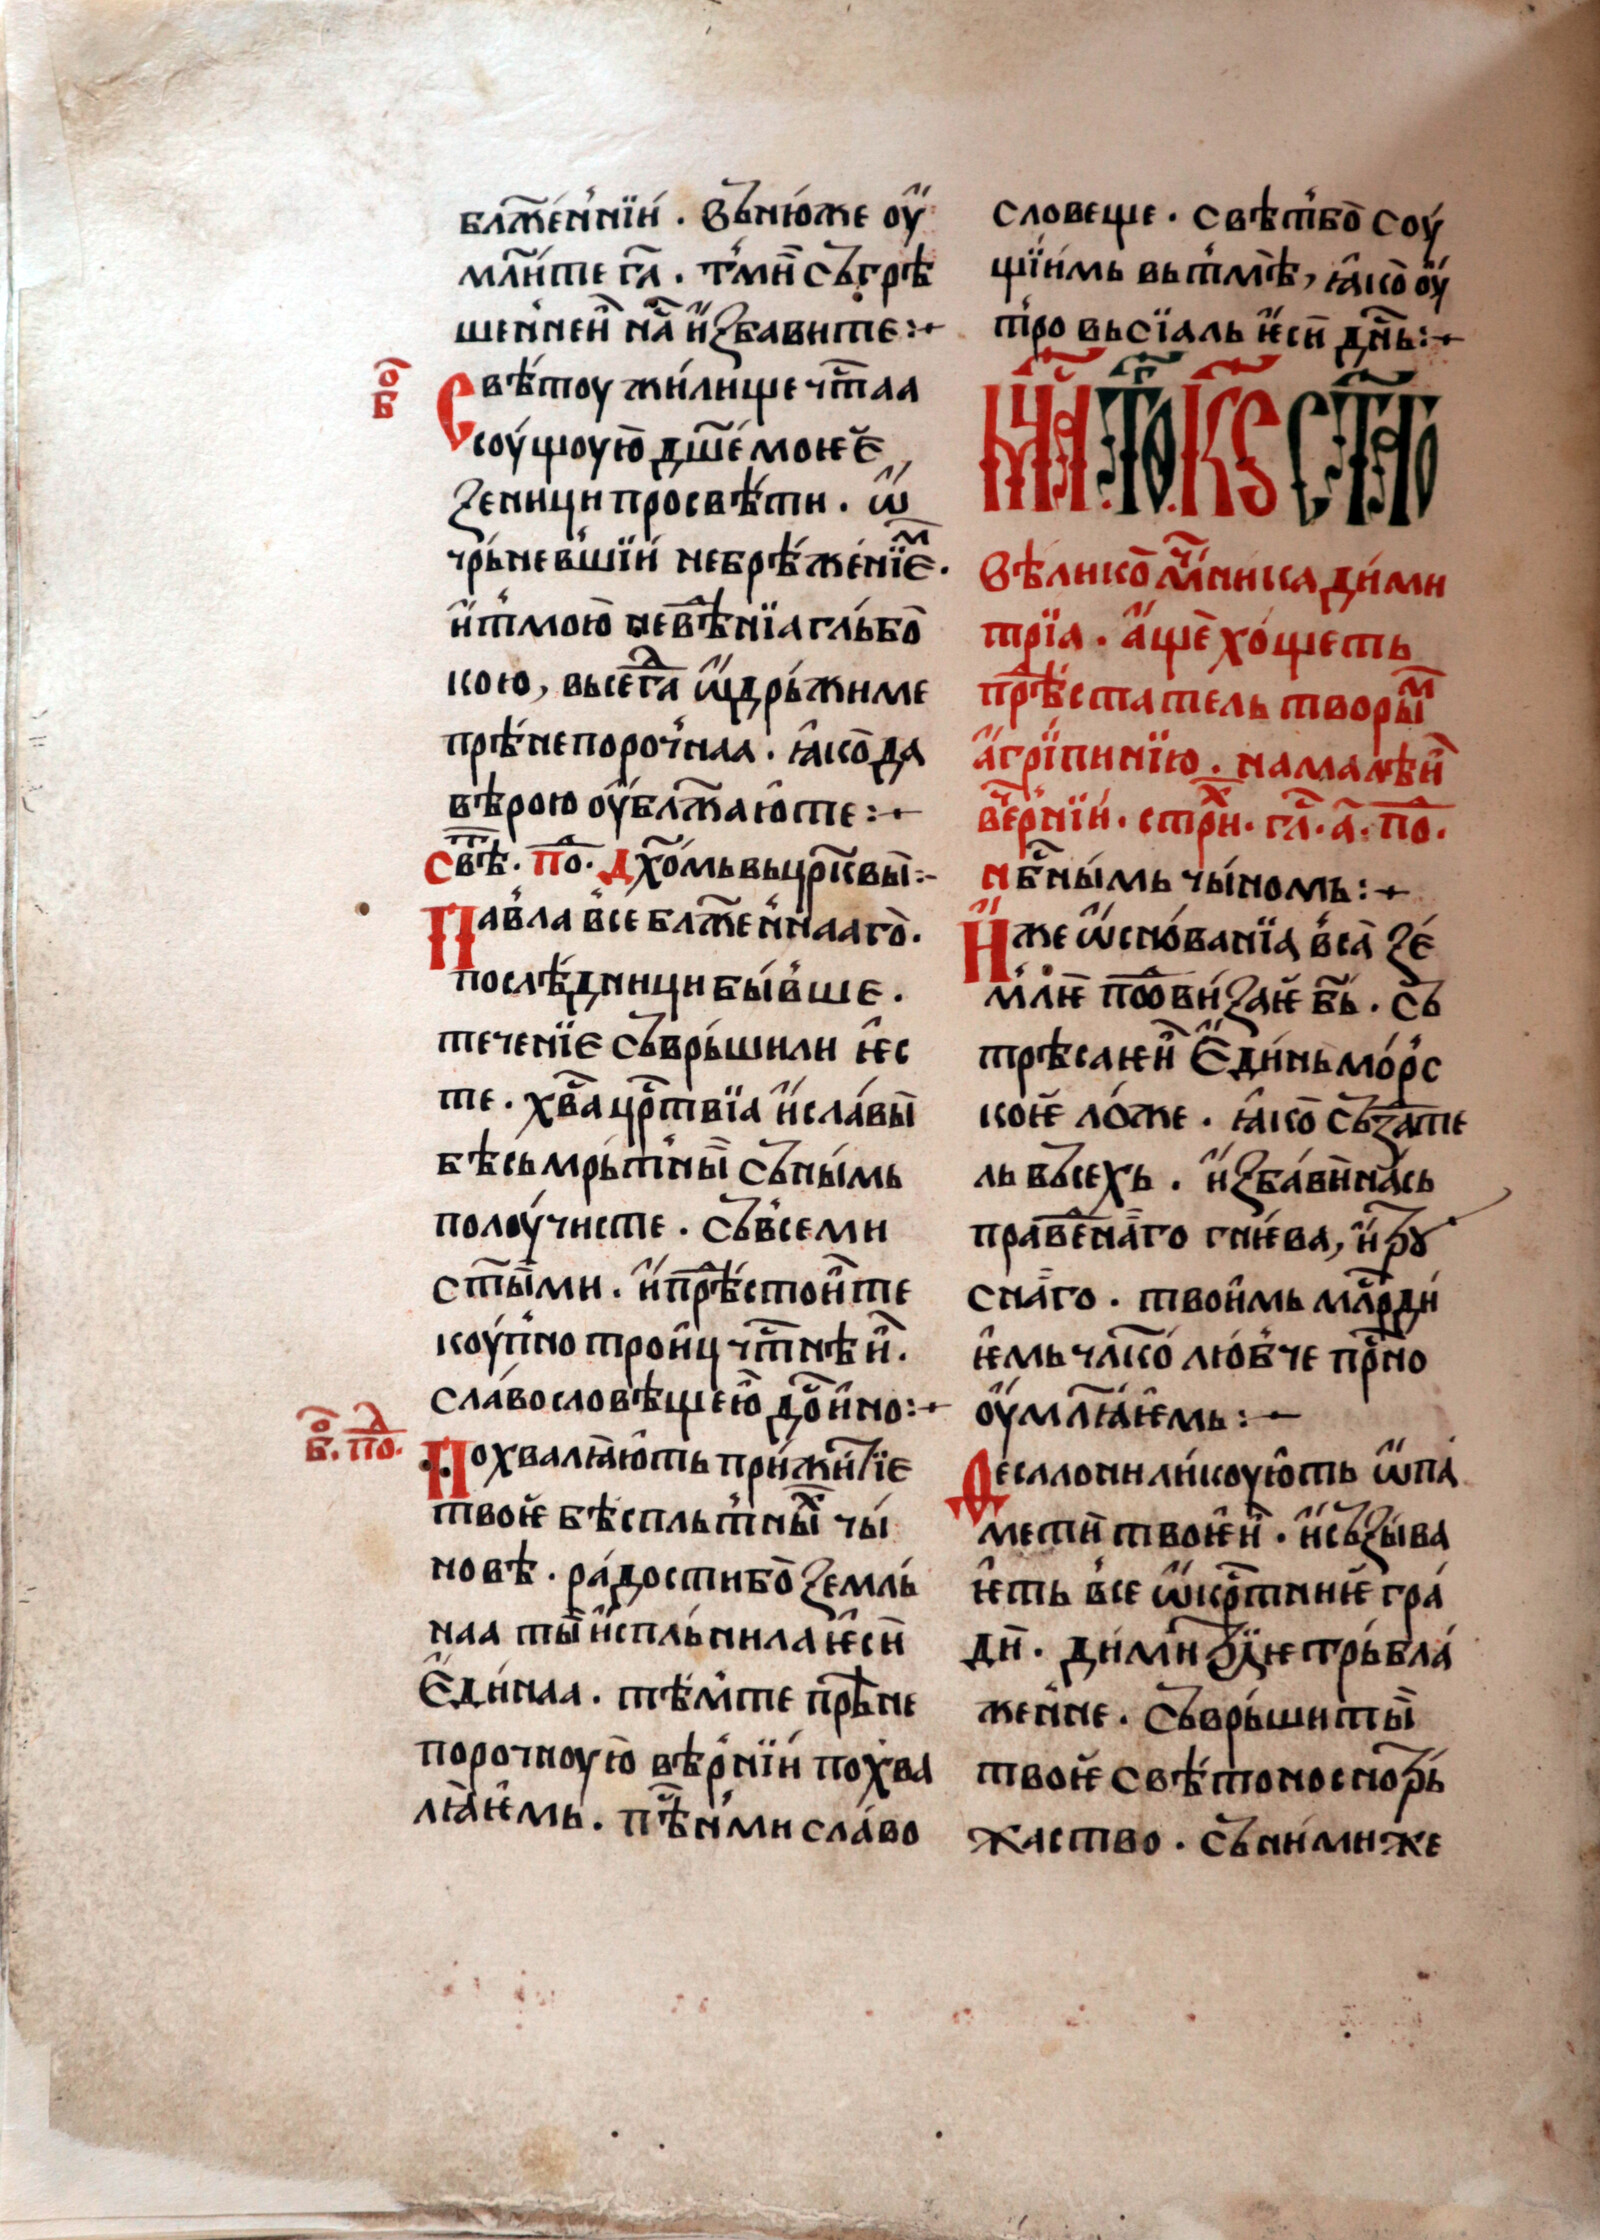 блж҃е́н'нїи́ . въню́же оу҆
мл҃и́те гл҃ . т'мы҃ съгрѣ
шен'неи҆̀ на҃ и҆збавите :~
ѡ҃ б҃
Свѣ́тоу жи́лище чт҃аа
соу́щоую̀ дш҃е́ мое҆ѥ
зеници просвѣ́ти . ѿ
чрь́невшїи́ небрѣже́нїем .
и҆ т'мою̀ невѣ́нїа глъбо
кою , вьсегда ѡ҆дрь́жиме
прѣ́непоро́чнаа . ꙗ҆ко̀ да
вѣ́рою оу҆блж҃аю҆те :~
свѣт . по . Дх҃о́мь вь цр҃квы̀ :~
Павла все́ бл҃женнааго̀ .
послѣ́дници бы́вше .
тече́нїе съврь́шили ѥ҆с
те . хв҃а цр҃твїа и҆ сла́вы̀
бѣсьмрь́т'ны̀ съны́мь
полоу́чисте . съвсеми
ст҃ы́ми . и҆ прѣ́стои҆те
коу́п'но трои҆ци чт҃нѣи҆ .
сла́вословѣщею̀ до҃и҆но :~
ѡ҃ б҃ . по .
Похвалꙗ́ю҆ть при́ жи́тїе
твоѥ̀ бѣспль́т'ных чы́
новѣ . ра́дости бо̀ земль́
наа ты̀ и҆спль́нила ѥ҆сѝ
е҆ди́наа . тѣ́м'те прѣне
поро́чноую̀ вѣр'нїи́ похва
лꙗ́ѥ҆мь . пѣ҃н'ми сла́во
словеще . свѣ́т'бо̀ соу́
щїи́мь вьт'мѣ̀ , ꙗ҆ко̀ оу҆
т'ро вьсїаль ѥ҆сѝ дн҃ь :~
Мц҃а . то . кѕ ст҃го
вѣлико̀мч҃ника ди́ми
трїа . а҆щѐ хо́щеть
прѣ́статель творы́м
а҆грїпи́нїю . на малѣи҆
ве҃рнїи́ . стрхи . гл҃ . а҃ . по .
нбⷭ҇ны́мь чы́номь :~
И҆же ѡ҆сно́ванїа все́а̀ зе́
млѥ̀ по́дви́заѥ бь҃ . съ
трѣсаѥи҆̀ е҆ди́нь мо́рс
коѥ̀ ло́же . ꙗ҆ко̀ създ҃ате
ль въсехь . и҆зба́ви насъ
праве́на̀го гнѥ́ва , и҆ тру
сна̀го . твои҆мь мл҃рди́
ѥ҆мь чл҃ко́ лю́бче пр҃но
оу҆мл҃ꙗ́ѥ҆мь :~
Десалони лі́коую҆ть ѿ па́
мети твоѥи҆̀ . и҆ съзы́ва
ѥ҆ть все́ ѡ҆крт҃ниѥ гра́
дѝ . ди́митрїѥ трь́бла́
жен'не . съврь́шити ты̀
твоѥ̀ свѣ́тоносно трь́
жаство . съ ни́миже